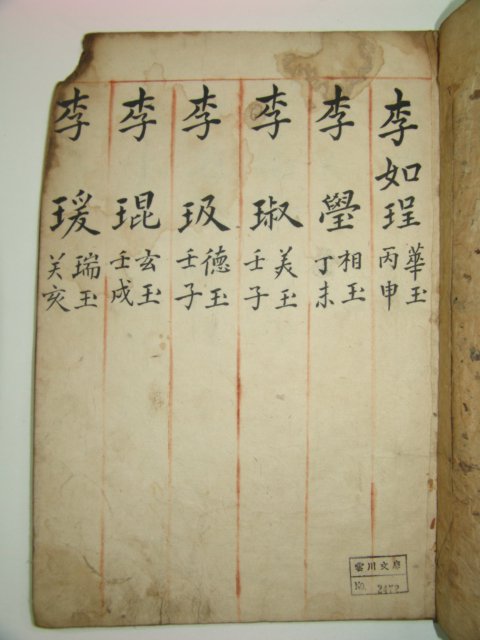 李如珵 華玉 丙申
李瑩 相玉 丁未
李琡 美玉 壬子
李玻 德玉 壬子
李琨 玄玉 壬戌
李瑗 瑞玉 癸亥
雲川文庫
No. 2472